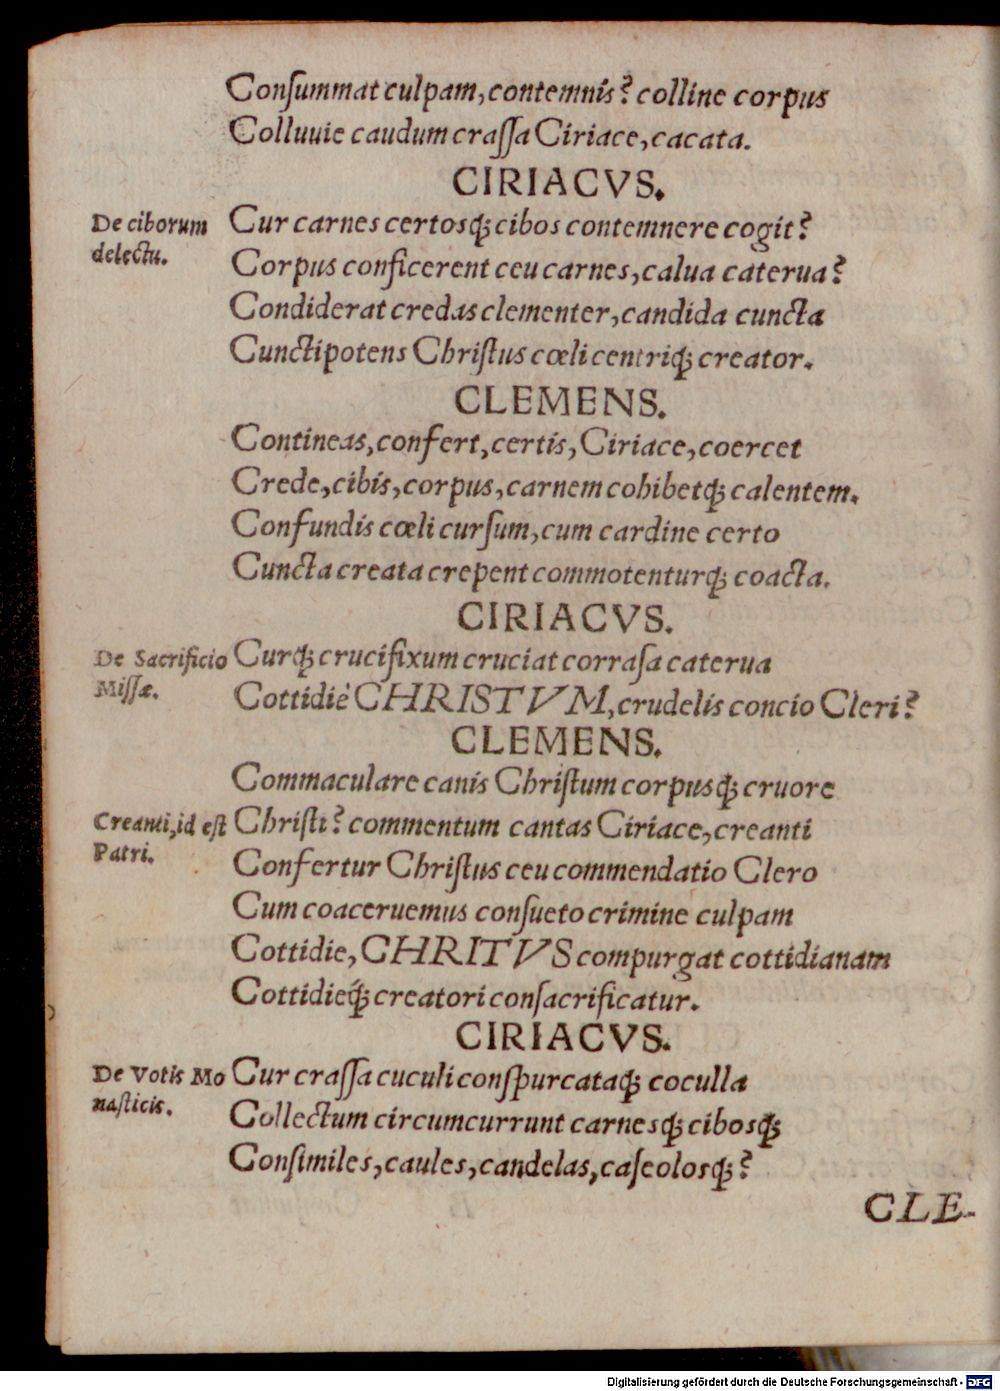 Conſummat culpam, contemnis? colline corpus
Colluuie caudum craſſa Ciriace, cacata.
CIRIACVS.
De ciborum
delectu.
Cur carnes certosq́; cibos contemnere cogit?
Corpus conficerent ceu carnes, calua caterua?
Condiderat credas clementer, candida cuncta
Cunctipotens Chriſtus cœli centriq́; creator.
CLEMENS.
Contineas, confert, certis, Ciriace, coercet
Crede, cibis, corpus, carnem cohibetq́; calentem.
Confundis cœli curſum, cum cardine certo
Cuncta creata crepent commotenturq́; coacta.
CIRIACVS.
De Sacrificio
Miſſæ.
Curq́; crucifixum cruciat corraſa caterua
Cottidie CHRISTVM, crudelis concio Cleri?
CLEMENS.
Commaculare canis Chriſtum corpusq́; cruore
Creanti, id eſt
Patri.
Chriſti? commentum cantas Ciriace, creanti
Confertur Chriſtus ceu commendatio Clero
Cum coaceruemus conſueto crimine culpam
Cottidie, CHRITVS compurgat cottidianam
Cottidieq́; creatori conſacrificatur.
CIRIACVS.
De Votis Mo
naſticis.
Cur craſſa cuculi conſpurcataq́; coculla
Collectum circumcurrunt carnesq́; cibosq́;
Conſimiles, caules, candelas, caſeolosq́;?
CLE-
Digitalisierung gefördert durch die Deutsche Forschungsgemeinschaft - DFG